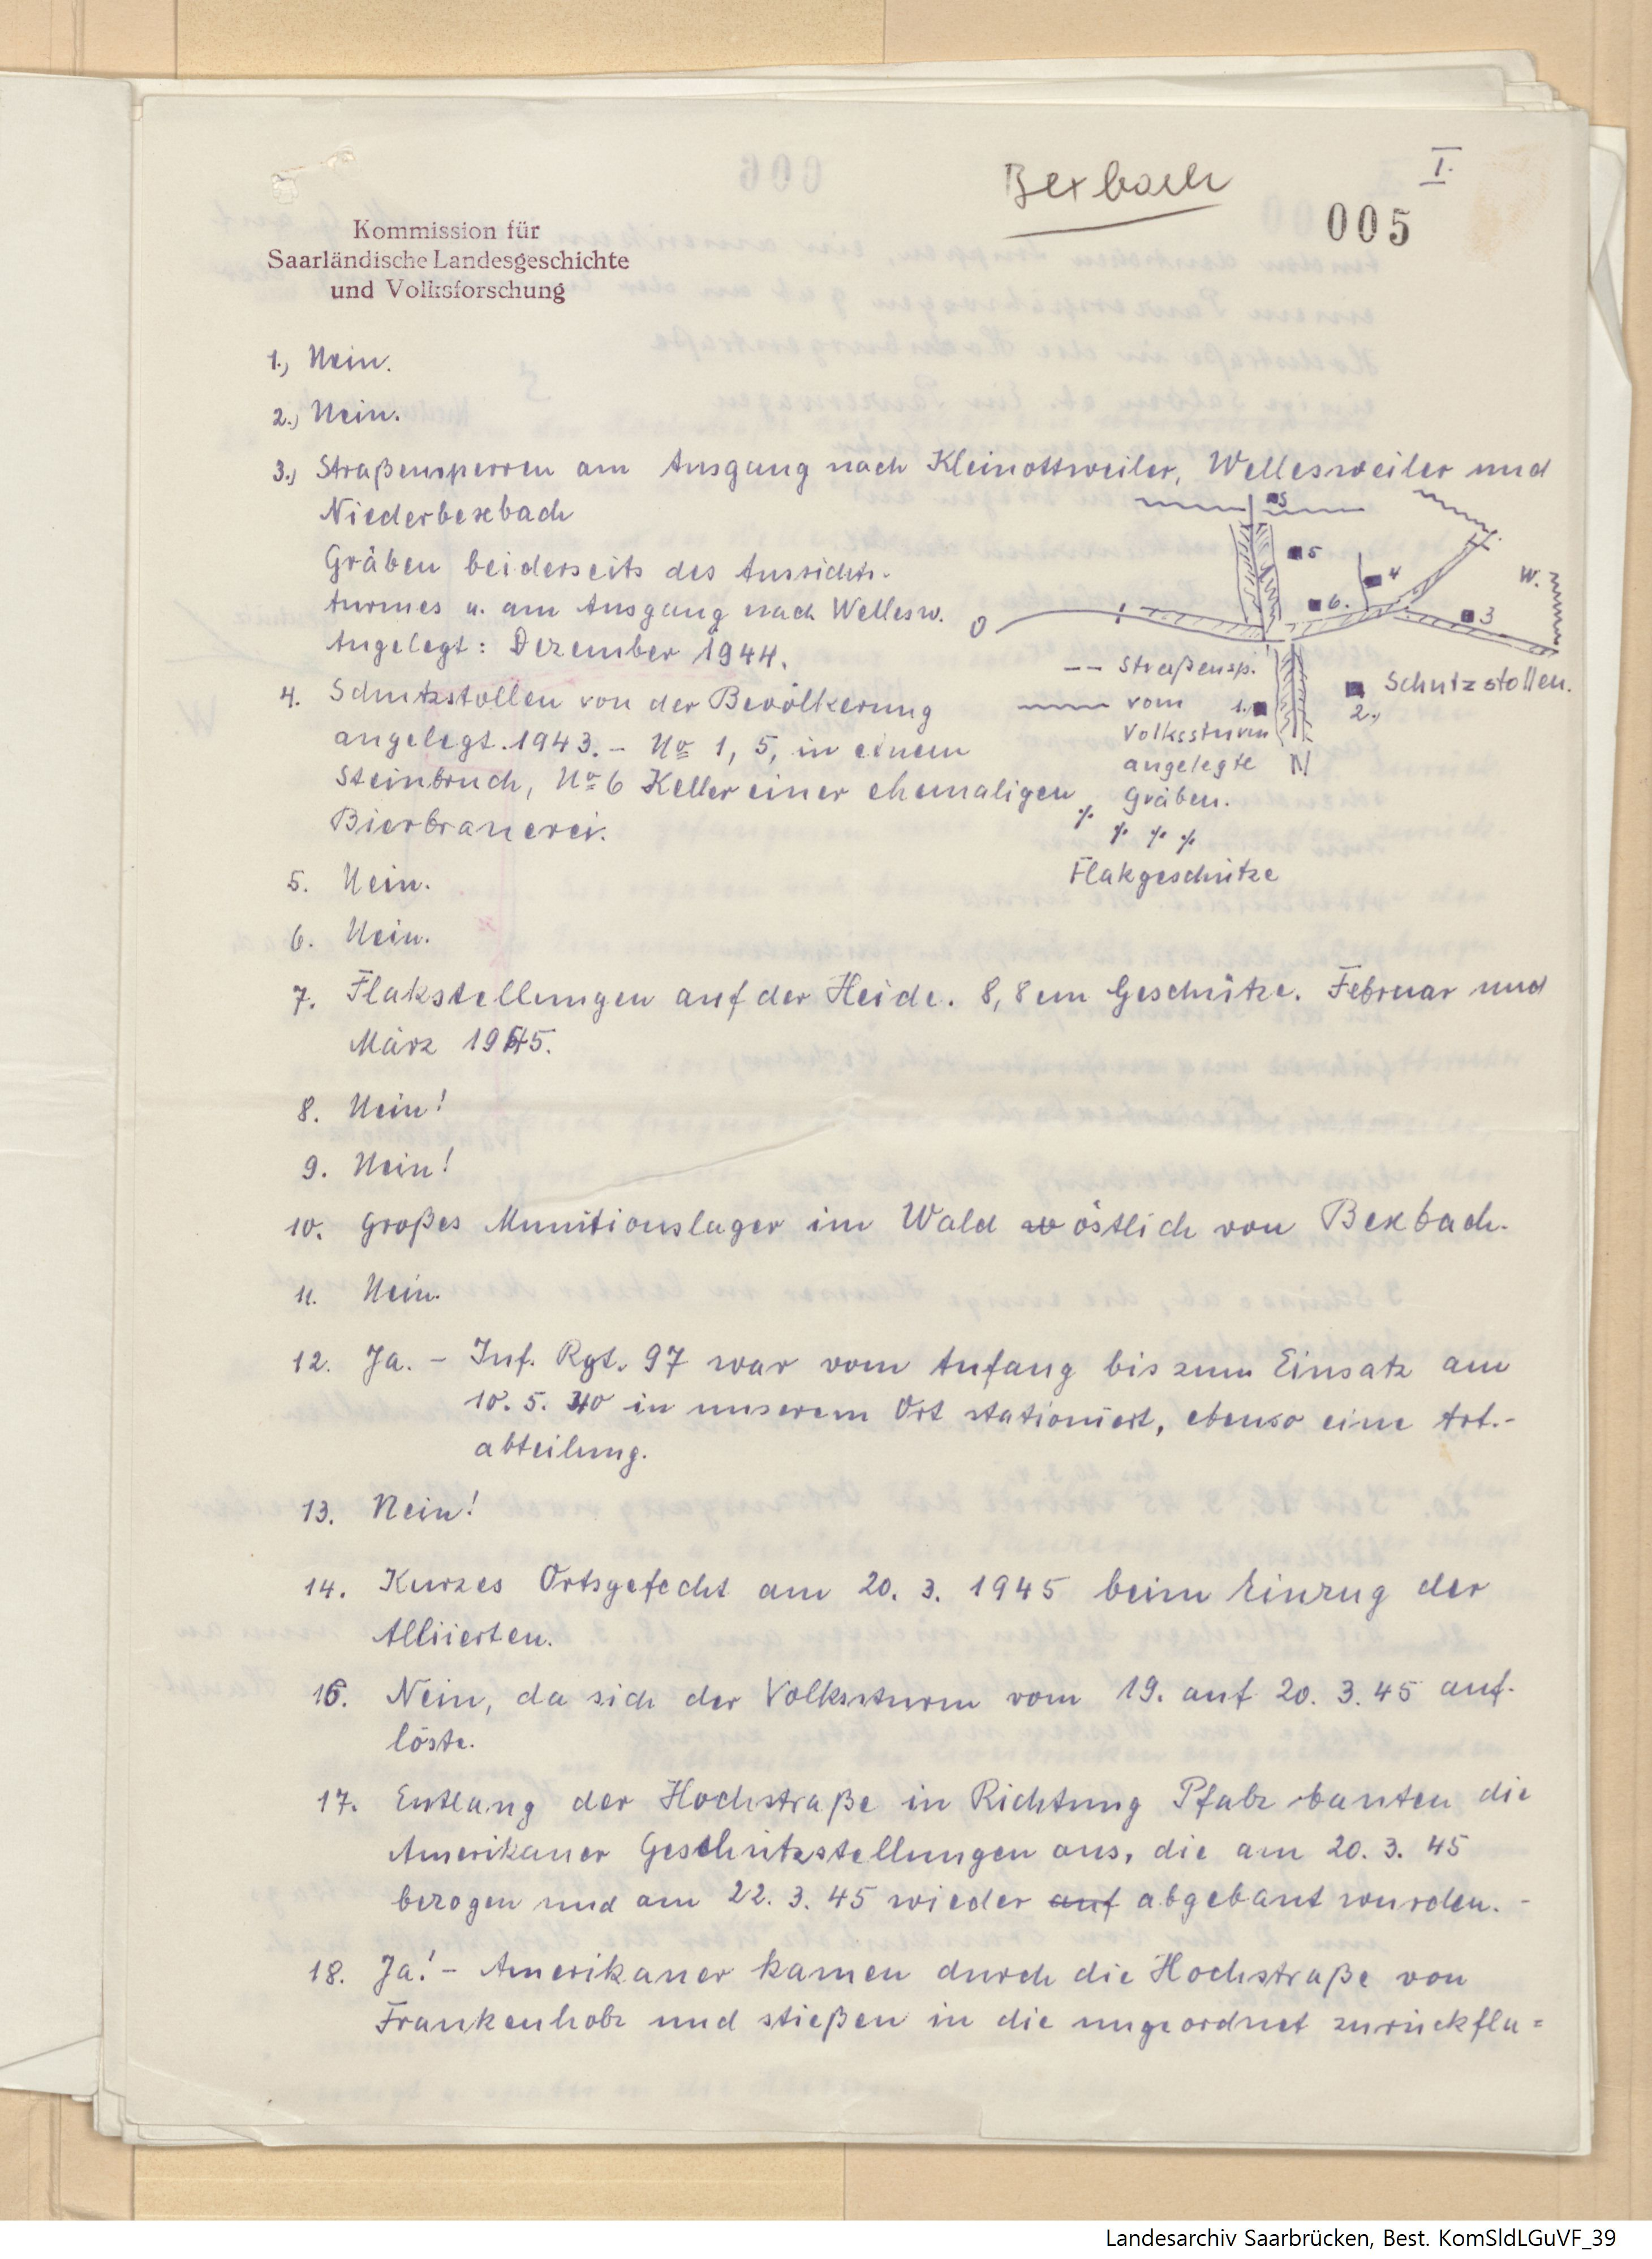 Bexbach
I.
005
Kommission für
Saarländische Landesgeschichte
und Volksforschung
1.) Nein.
2.) Nein.
3.) Straßensperren am Ausgang nach Kleinottweiler, Wellesweiler und
Niederbexbach
Gräben beiderseits des Aussichts-
turmes u. am Ausgang nach Wellesw.
Angelegt: Dezember 1944.
S
5
4
W.
6.
3
O
-- Straßensp.
vom
Volkssturm
angelegte
Gräben.
1.
N
Schutzstollen.
2.)
Flakgeschütze
4. Schutzstollen von der Bevölkerung
angelegt. 1943. - No 1, 5, in einem
Steinbruch, No 6 Keller einer ehemaligen
Bierbrauerei.
5. Nein.
6. Nein.
7. Flakstellungen auf der Heide. 8,8 cm Geschütze. Februar und
März 1945.
8. Nein!
9. Nein!
10. Großes Munitionslager im Wald östlich von Bexbach.
11. Nein.
12. Ja. - Inf. Rgt. 97 war vom Anfang bis zum Einsatz am
10. 5. 40 in unserem Ort stationiert, ebenso eine Art.-
abteilung.
13. Nein!
14. Kurzes Ortsgefecht am 20. 3. 1945 beim Einzug der
Alliierten.
16. Nein, da sich der Volkssturm vom 19. auf 20. 3. 45 auf-
löste.
17. Entlang der Hochstraße in Richtung Pfalz bauten die
Amerikaner Geschützstellungen aus, die am 20. 3. 45
bezogen und am 22. 3. 45 wieder auf abgebaut wurden. -
18. Ja! - Amerikaner kamen durch die Hochstraße von
Frankenholz und stießen in die ungeordnet zurückflu=
Landesarchiv Saarbrücken, Best. KomSldLGuVF_39